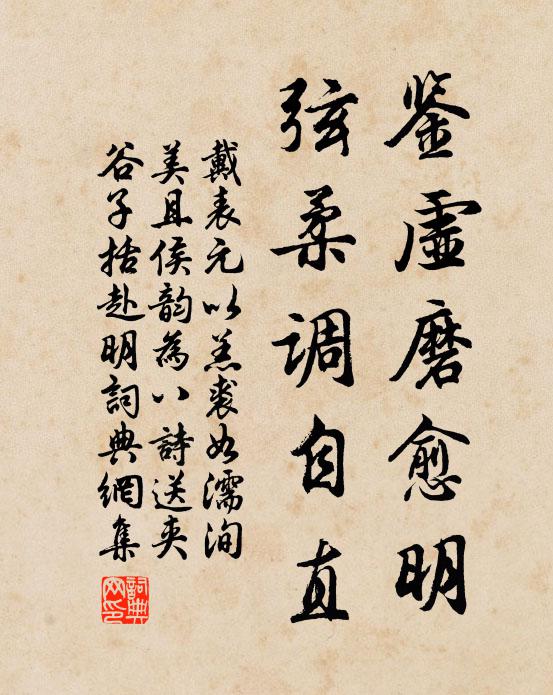 鉴虚磨愈明
弦柔调自直
戴表元以羔裘如濡洵
美且侯韵为八诗送夹
谷子括赴明词典網集
詞典网印